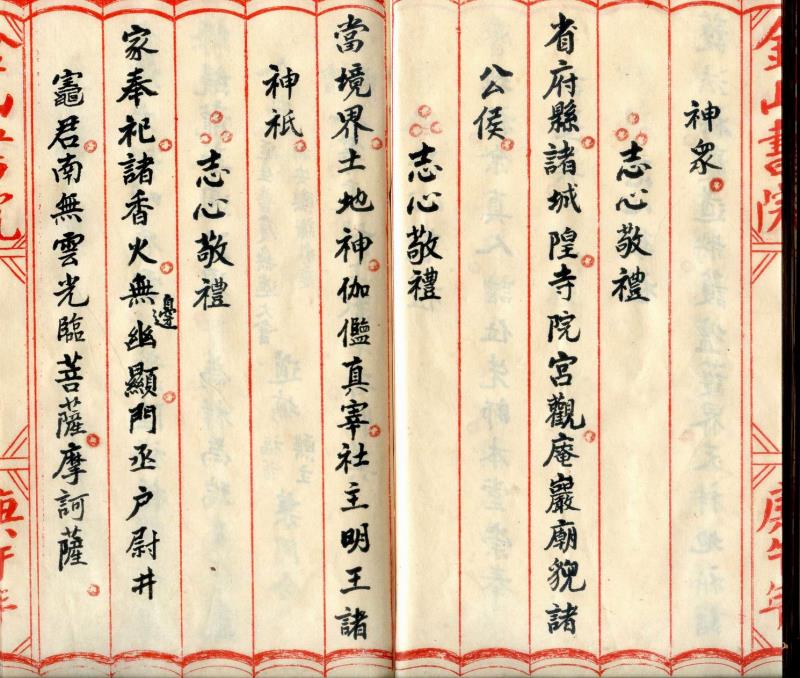 神衆
志心敬禮
省府縣諸城隍寺院宮觀庵巖廟貌諸
公侯
志心敬禮
當境界土地神伽儖真宰社主明王諸
神祇
志心敬禮
家奉祀諸香火無邊幽顯門丞户尉井
竈君南無雲光臨菩薩摩訶薩